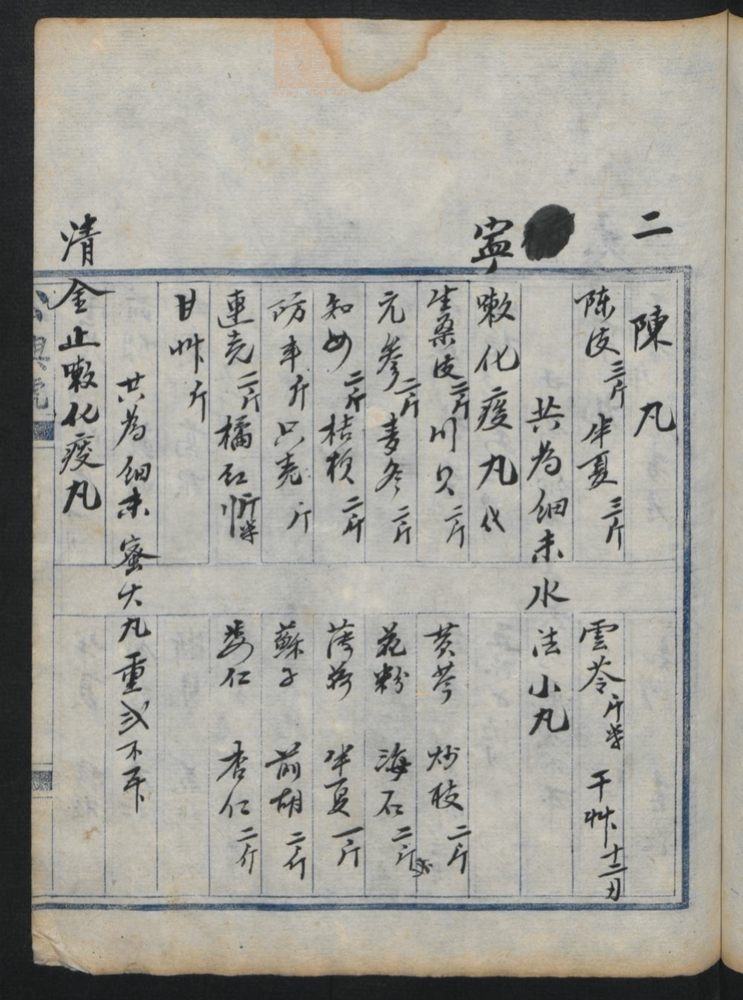 二陳丸
陈皮三斤 半夏三斤 雲苓斤半 干艸十二刃
共为细末水法小丸
寜嗽化痰丸代
生桑皮二斤 川贝二斤 黄芩 炒枝二斤
元参二斤 麦冬二斤 花粉 海石二斤
知母二斤 桔梗二斤 薄荷 半夏一斤
防丰斤 只壳斤 蘇子 前胡二斤
連壳二斤 橘红斤半 蒌仁 杏仁二斤
甘艸斤
共為细末蜜大丸重弍不
清金止嗽化痰丸